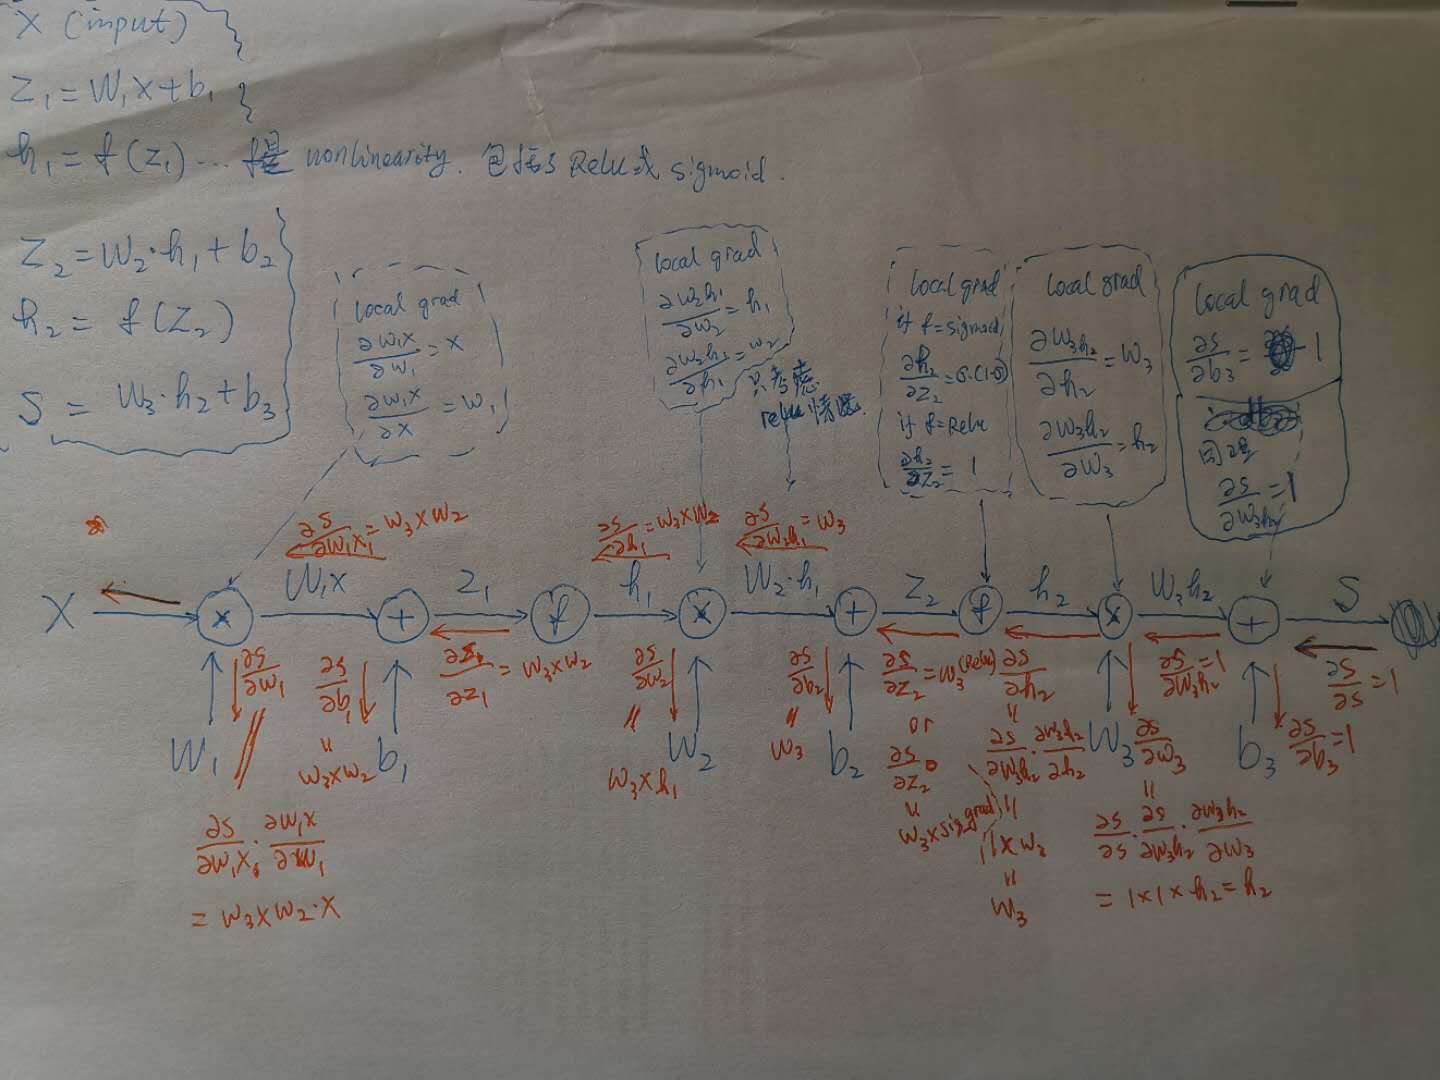 X (input)
Z₁ = W₁X + b₁
h₁ = f(Z₁) ... f是 nonlinearity. 包括了 Relu 或 sigmoid.
Z₂ = W₂·h₁ + b₂
h₂ = f(Z₂)
S = W₃·h₂ + b₃
local grad
∂W₁X/∂W₁ = X
∂W₁X/∂X = W₁
local grad
∂W₂h₁/∂W₂ = h₁
∂W₂h₁/∂h₁ = W₂
只考虑
relu 情况.
local grad
if f=sigmoid
∂h₂/∂Z₂ = σ·(1-σ)
if f=Relu
∂h₂/∂Z₂ = 1
local grad
∂W₃h₂/∂h₂ = W₃
∂W₃h₂/∂W₃ = h₂
local grad
∂S/∂b₃ = 1
同理
∂S/∂W₃h₂ = 1
∂S/∂W₁X₁ = W₃×W₂
∂S/∂h₁ = W₃×W₂
∂S/∂W₂h₁ = W₃
X × W₁X + Z₁ f h₁ × W₂·h₁ + Z₂ f h₂ × W₃h₂ + S
∂S/∂W₁
∂S/∂b₁
∂S/∂Z₁ = W₃×W₂
∂S/∂W₂
∂S/∂b₂
∂S/∂Z₂ = W₃ (Relu)
∂S/∂h₂
∂S/∂W₃h₂ = 1
∂S/∂S = 1
W₁
= W₃×W₂
b₁
= W₃×h₁
W₂
= W₃
b₂
or
∂S/∂Z₂
= W₃×sig grad
= ∂S/∂W₃h₂ · ∂W₃h₂/∂h₂
= 1×W₂
= W₃
W₃
∂S/∂W₃
b₃
∂S/∂b₃ = 1
∂S/∂W₁X₁ · ∂W₁X/∂W₁
= W₃×W₂·X
= ∂S/∂S · ∂S/∂W₃h₂ · ∂W₃h₂/∂W₃
= 1×1×h₂ = h₂